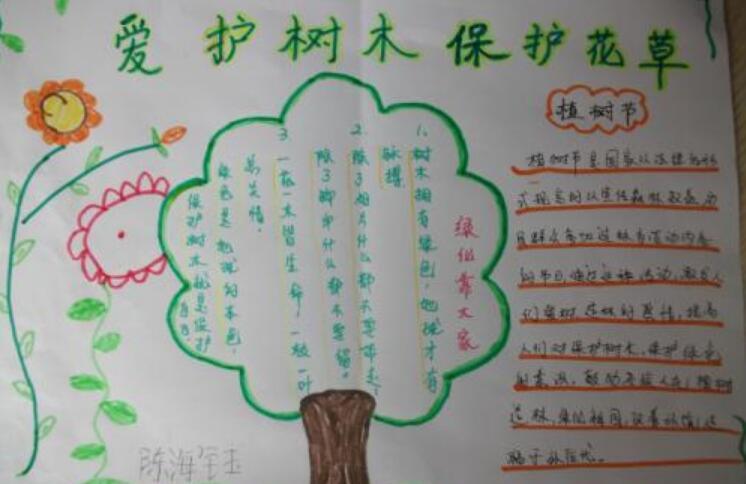 爱护树木保护花草
植树节
绿化靠大家
1、树木拥有绿色,地球才有
脉搏
2、除了相片什么都不要带走,
除了脚印什么都不要留。
3、一花一木皆生命,一枝一叶
总关情。
绿色是地球的本色,
保护树木就是保护
自己。
植树节是国家以法律的形
式规定的以宣传森林效益,
群众参加造林为活动内容
的节日,通过这种活动,
们爱树造林的热情,提高
人们对保护树木,保护绿色
的意识,
造林,绿化祖国,
陈海